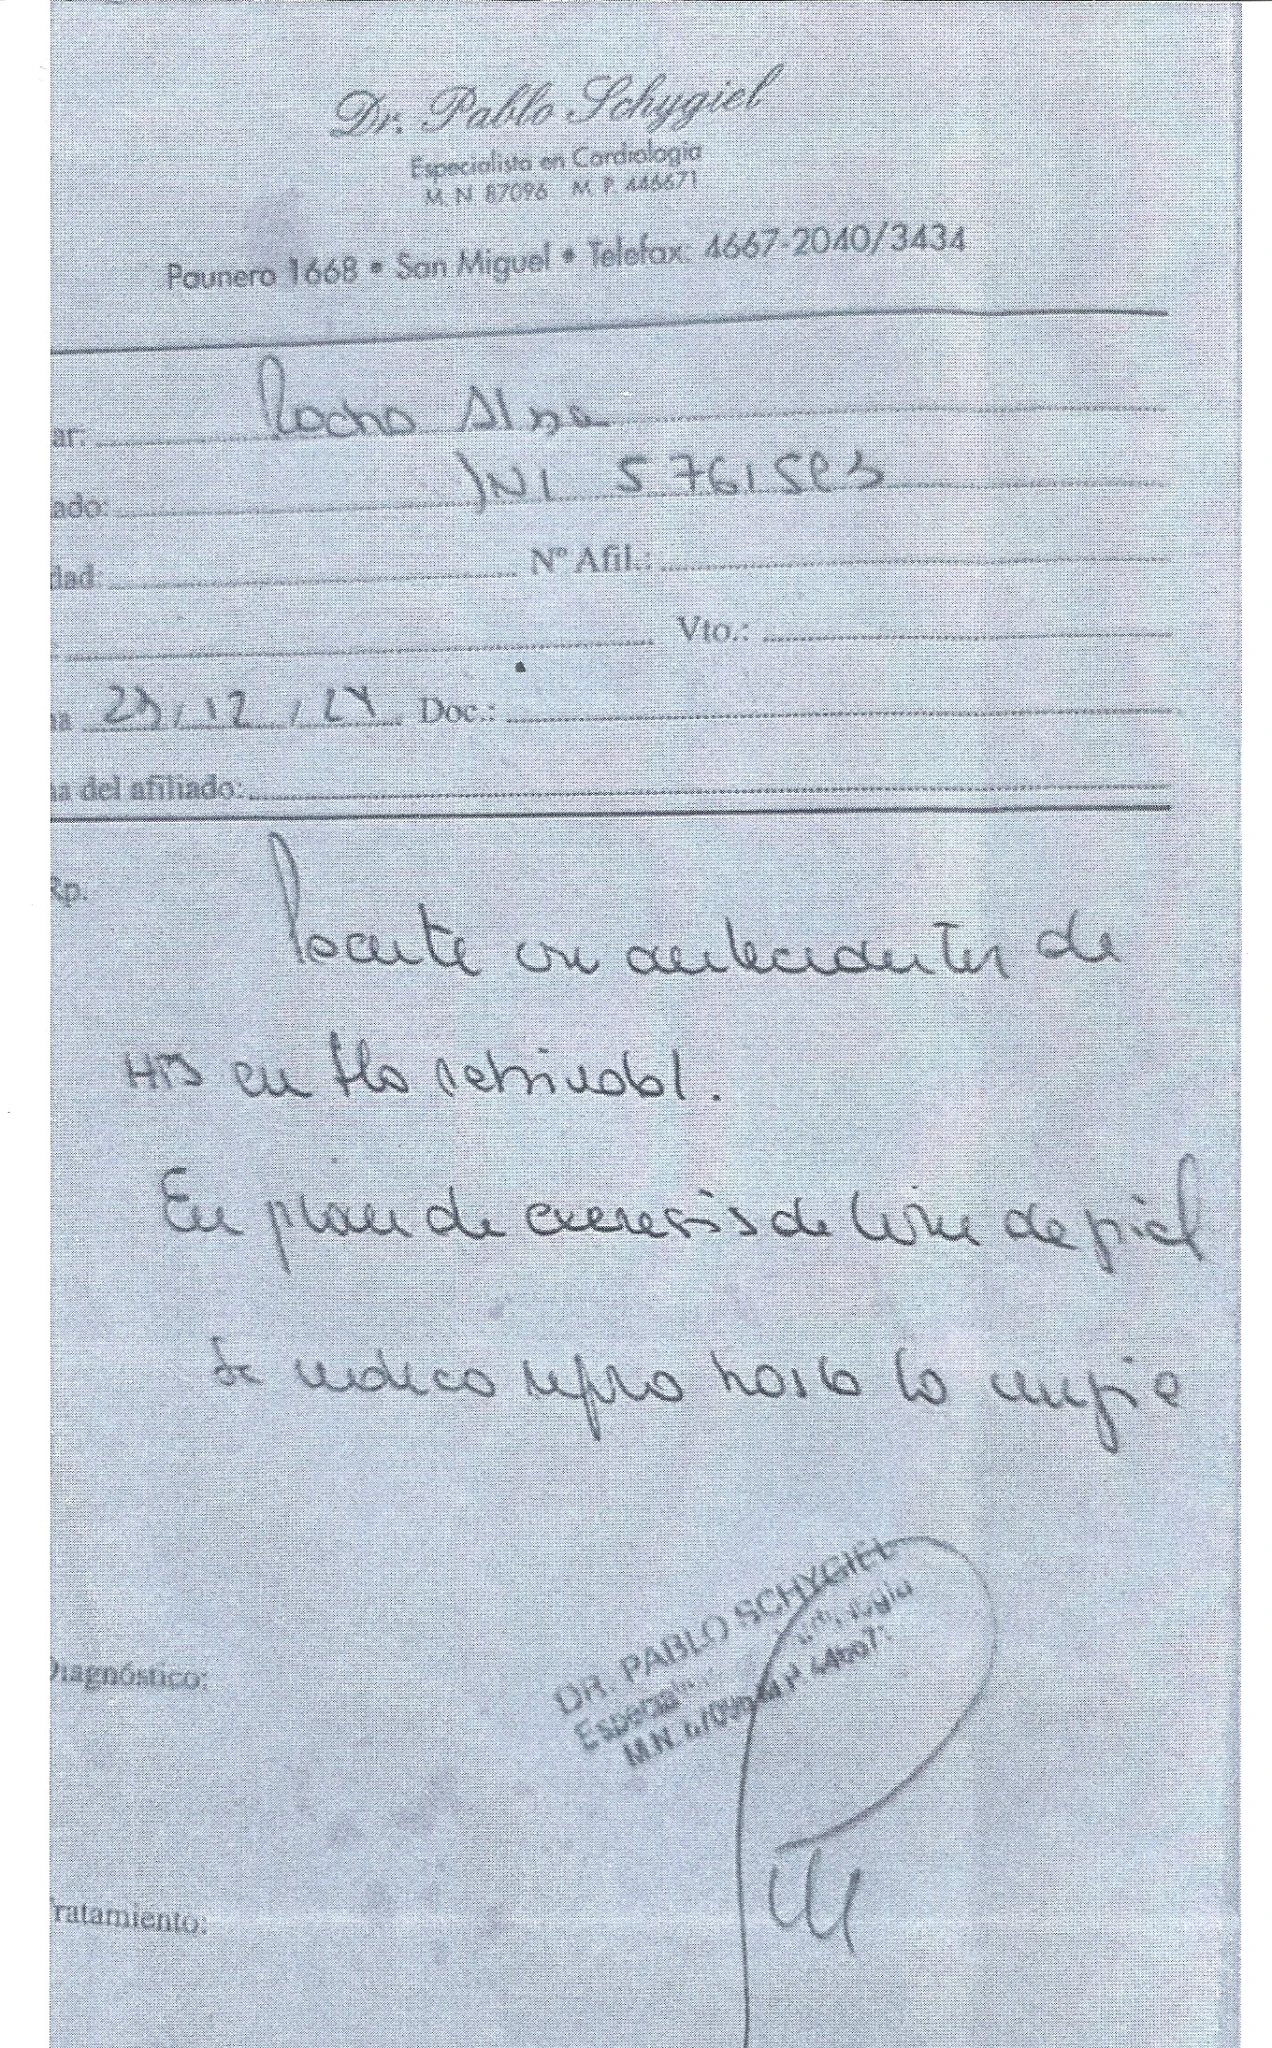 Dr. Pablo Schygiel
Especialista en Cardiologia
M. N. 87096 M. P. 446671
Paunero 1668 • San Miguel • Telefax: 4667-2040/3434
ar: Rocha Alba
ado: DNI 5761563
dad: Nº Afil.:
Vto.:
a 23/12/24 Doc.:
a del afiliado:
Rp.
Paciente con antecedentes de
HTA en tto
En plan de exeresis de lesion de piel
Se indica reposo hasta la cirugia
DR. PABLO SCHYGIEL
M.N.
Diagnóstico:
ratamiento: